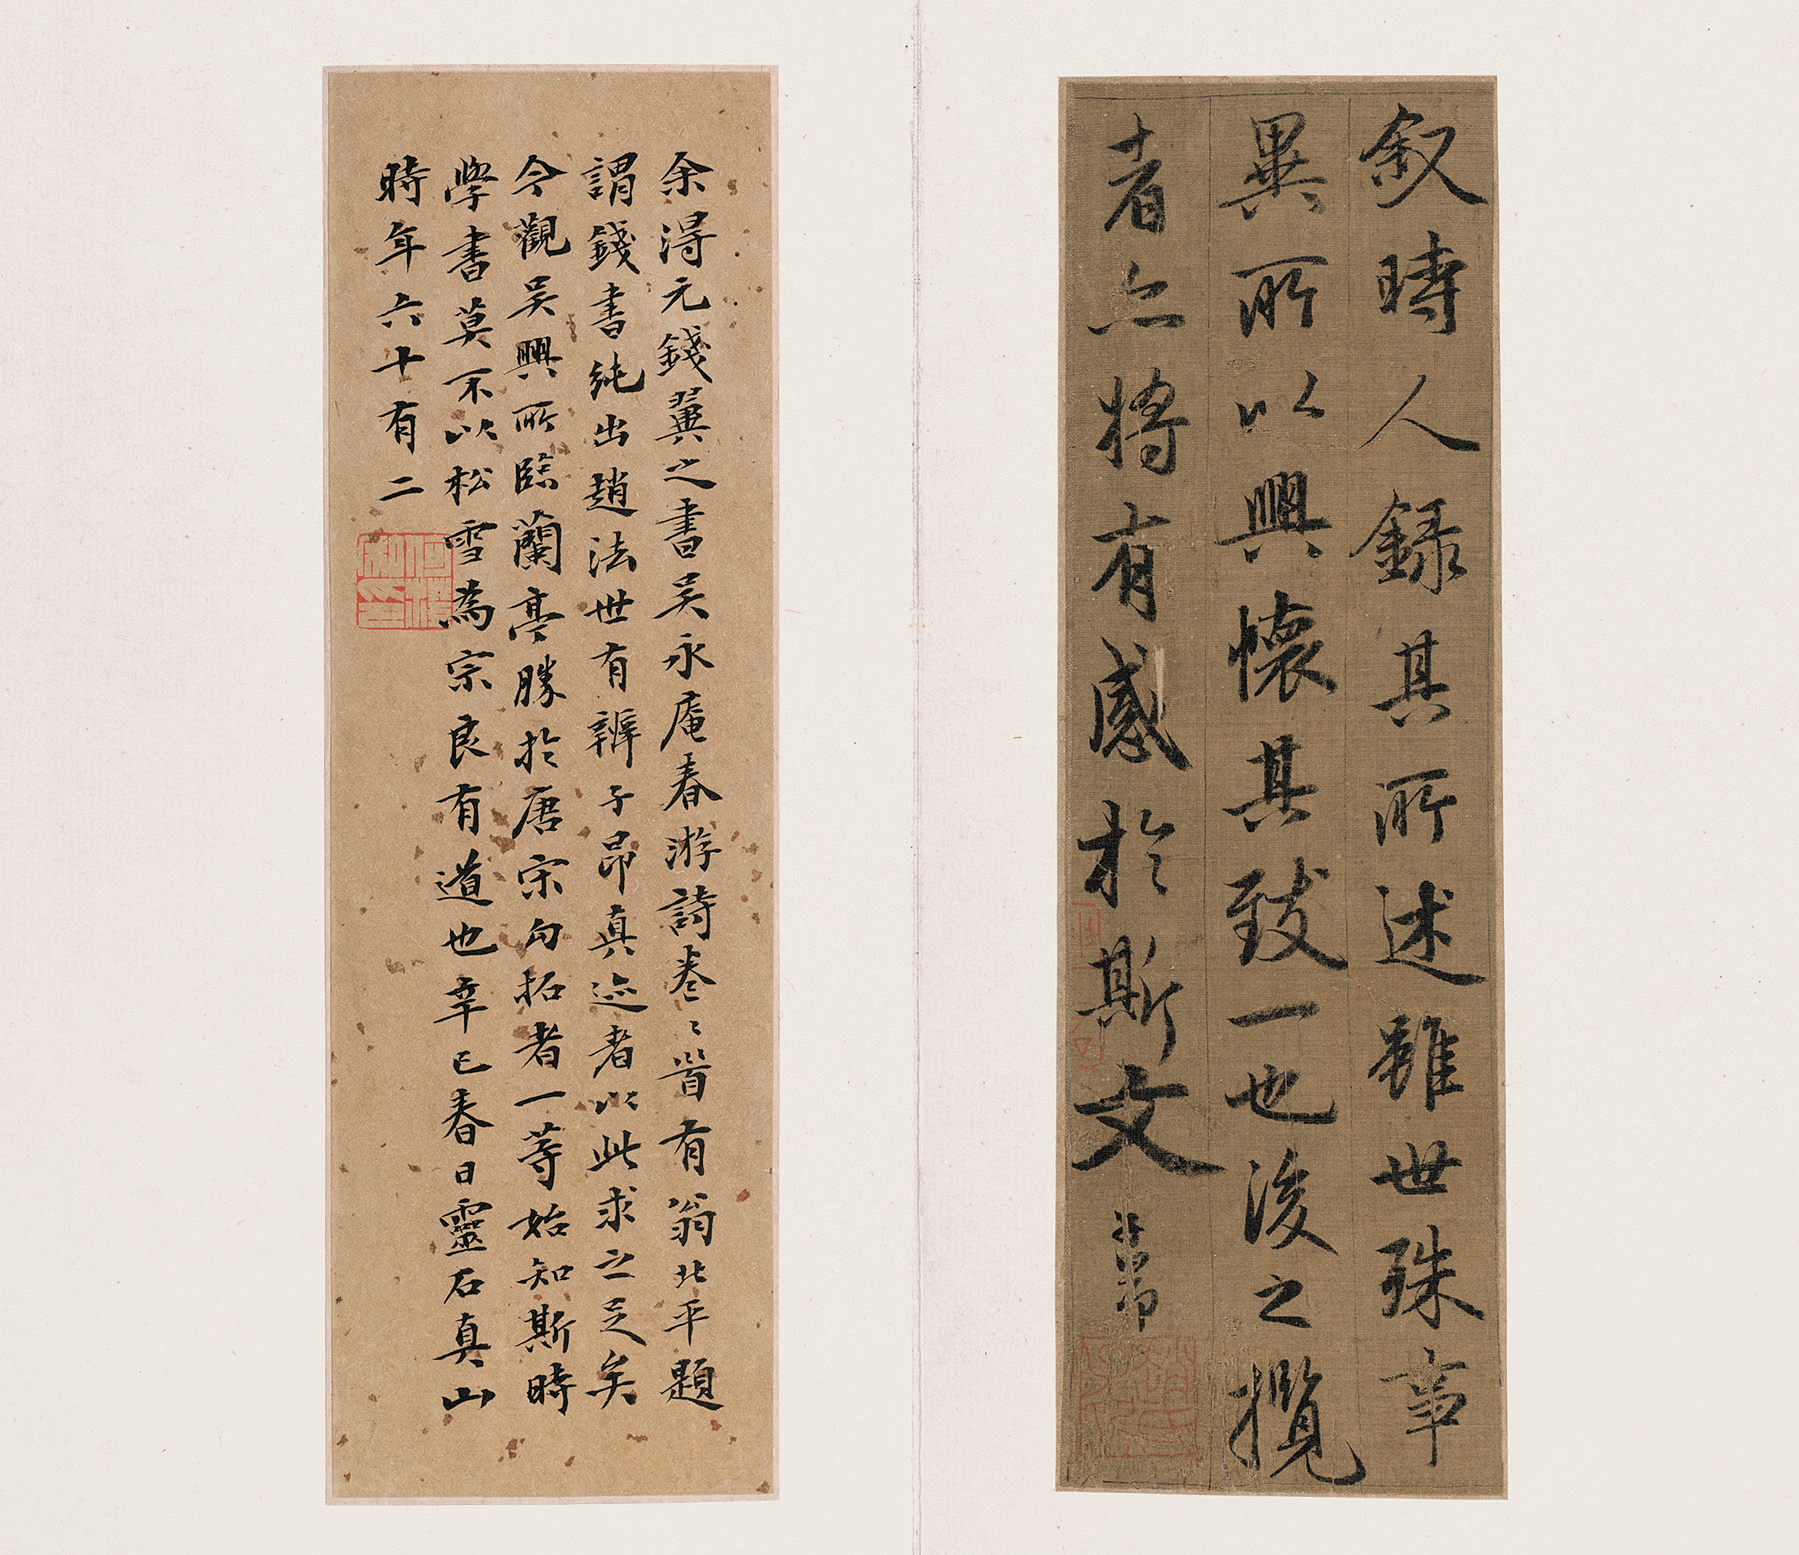 叙時人録其所述雖世殊事
異所以興懷其致一也後之攬
者亦將有感於斯文
余得元錢翼之書吴永庵春游詩卷〻首有翁北平題
謂錢書純出趙法世有辨子昂真迹者以此求之足矣
今觀吴興所臨蘭亭勝於唐宋勾拓者一等始知斯時
學書莫不以松雪為宗良有道也辛巳春日靈石真山
時年六十有二